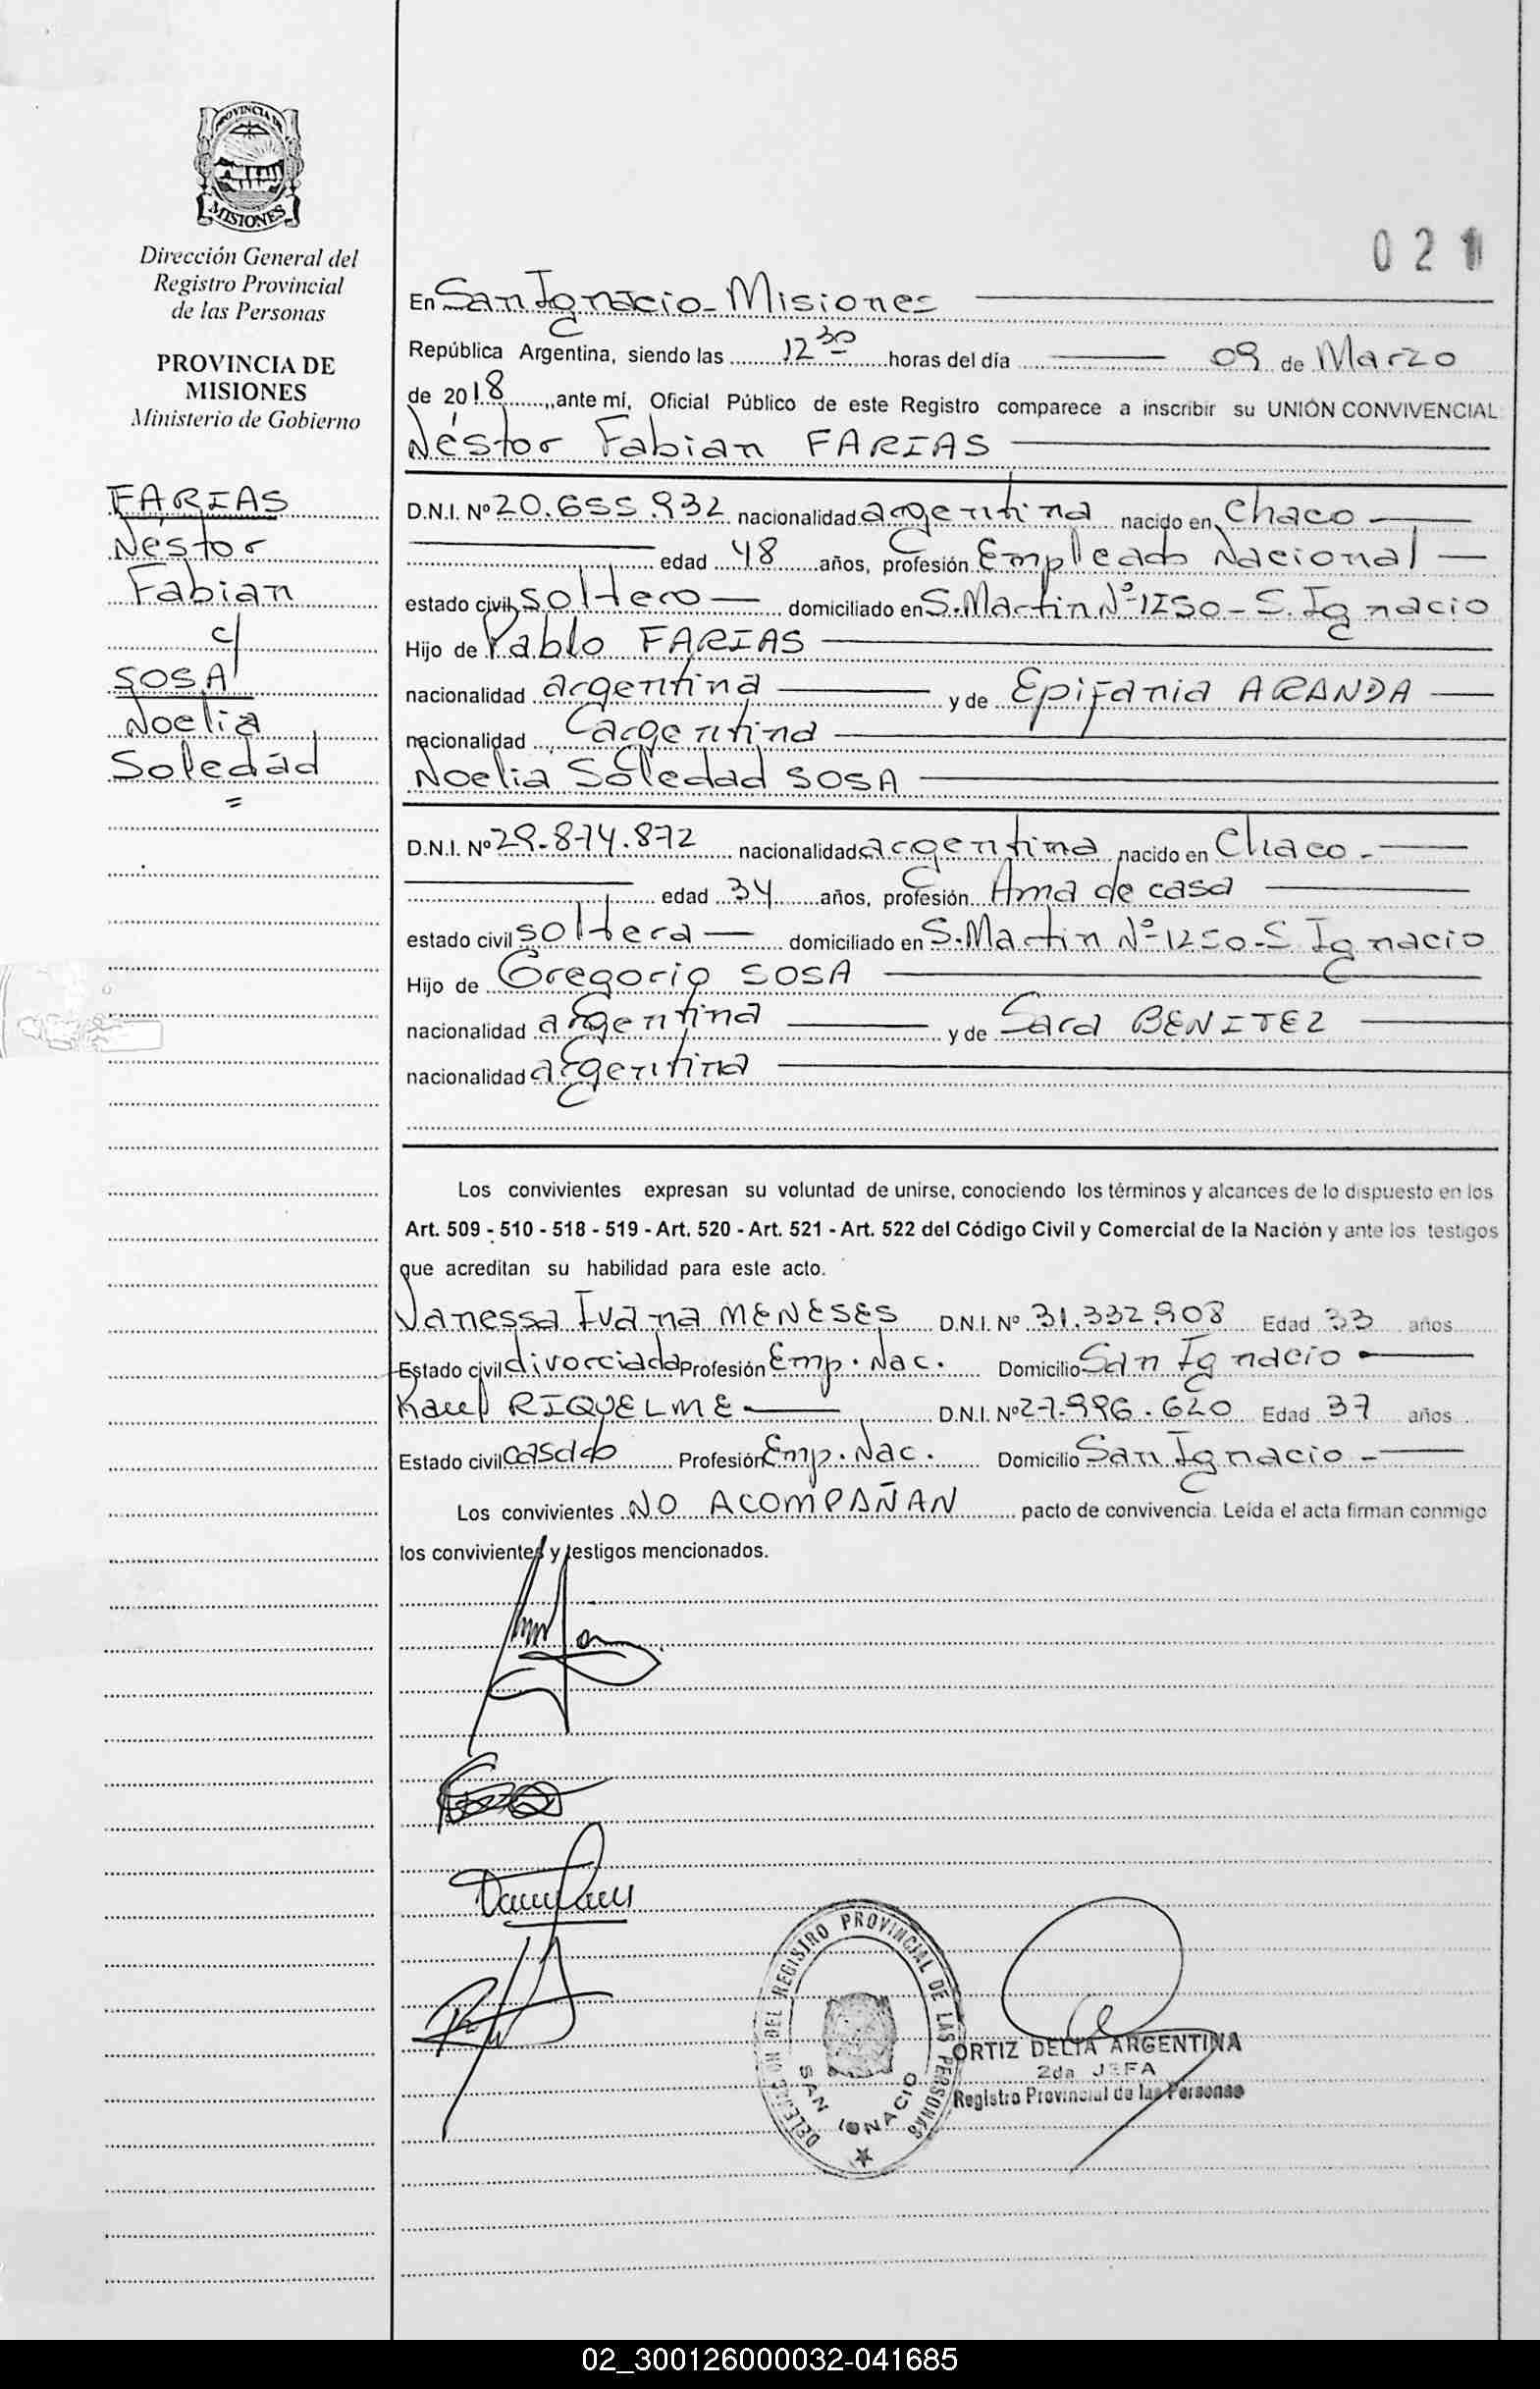 PROVINCIA DE
MISIONES
Dirección General del
Registro Provincial
de las Personas
PROVINCIA DE
MISIONES
Ministerio de Gobierno
FARIAS
Néstor
Fabian
c/
SOSA
Noelia
Soledad
=
021
En San Ignacio - Misiones
República Argentina, siendo las 12 30 horas del día 09 de Marzo
de 2018, ante mí, Oficial Público de este Registro comparece a inscribir su UNIÓN CONVIVENCIAL:
Néstor Fabian FARIAS
D.N.I. Nº 20.655.932 nacionalidad argentina nacido en Chaco
edad 48 años, profesión Empleado Nacional
estado civil soltero domiciliado en S. Martin Nº 1250 - S. Ignacio
Hijo de Pablo FARIAS
nacionalidad argentina y de Epifania ARANDA
nacionalidad argentina
Noelia Soledad SOSA
D.N.I. Nº 29.874.872 nacionalidad argentina nacido en Chaco.
edad 34 años, profesión Ama de casa
estado civil soltera domiciliado en S. Martin Nº 1250 - S. Ignacio
Hijo de Gregorio SOSA
nacionalidad argentina y de Sara BENITEZ
nacionalidad argentina
Los convivientes expresan su voluntad de unirse, conociendo los términos y alcances de lo dispuesto en los
Art. 509 - 510 - 518 - 519 - Art. 520 - Art. 521 - Art. 522 del Código Civil y Comercial de la Nación y ante los testigos
que acreditan su habilidad para este acto.
Vanessa Ivana MENESES D.N.I. Nº 31.332.908 Edad 33 años
Estado civil divorciada Profesión Emp. Nac. Domicilio San Ignacio
Raul RIQUELME D.N.I. Nº 27.996.620 Edad 37 años
Estado civil casado Profesión Emp. Nac. Domicilio San Ignacio
Los convivientes NO ACOMPAÑAN pacto de convivencia. Leída el acta firman conmigo
los convivientes y testigos mencionados.
DELEGACION DEL REGISTRO PROVINCIAL DE LAS PERSONAS
SAN IGNACIO
ORTIZ DELIA ARGENTINA
2da JEFA
Registro Provincial de las Personas
02_300126000032-041685